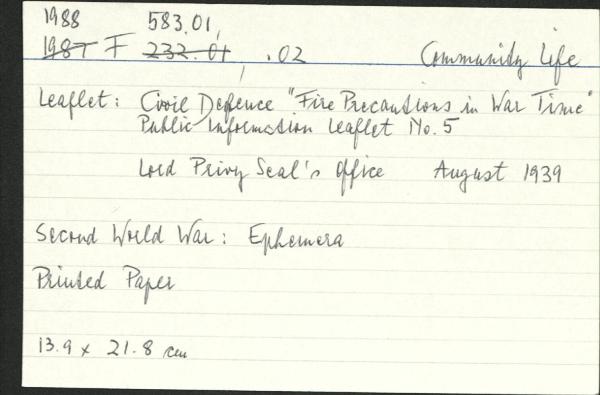 1988 583.01,
1987 F 232.01, .02 Community Life
Leaflet: Civil Defence "Fire Precautions in War Time"
Public Information Leaflet No. 5
Lord Privy Seal's Office August 1939
Second World War: Ephemera
Printed Paper
13.9 x 21.8 cm